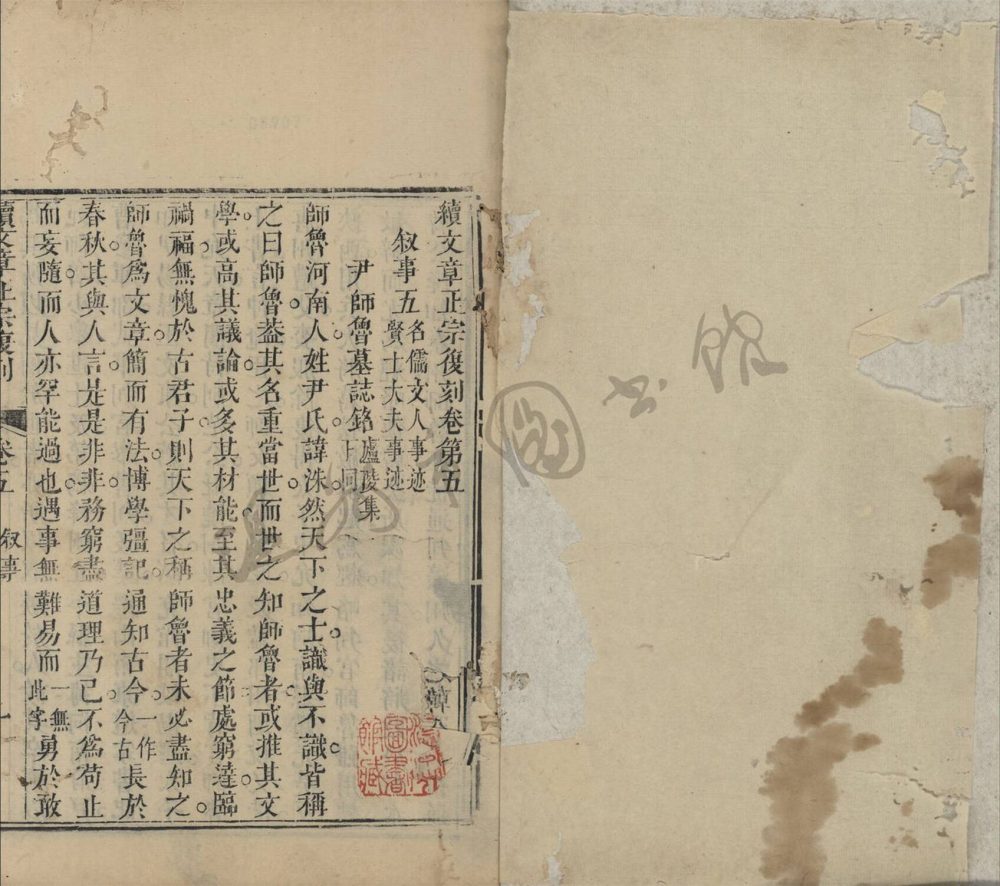 續文章正宗復刻卷第五
叙事五 名儒文人事迹 賢士大夫事迹
尹師魯墓誌銘 廬陵集 下同
師魯河南人姓尹氏諱洙然天下之士識與不識皆稱
之曰師魯葢其名重當世而世之知師魯者或推其文
學或高其議論或多其材能至其忠義之節處窮達臨
禍福無愧於古君子則天下之稱師魯者未必盡知之
師魯爲文章簡而有法博學彊記通知古今 一作 今古 長於
春秋其與人言是是非非務窮盡道理乃已不爲苟止
而妄隨而人亦罕能過也遇事無難易而 一無 此字 勇於敢
續文章正宗復刻 卷五 叙事 一
圖書館藏
圖書館